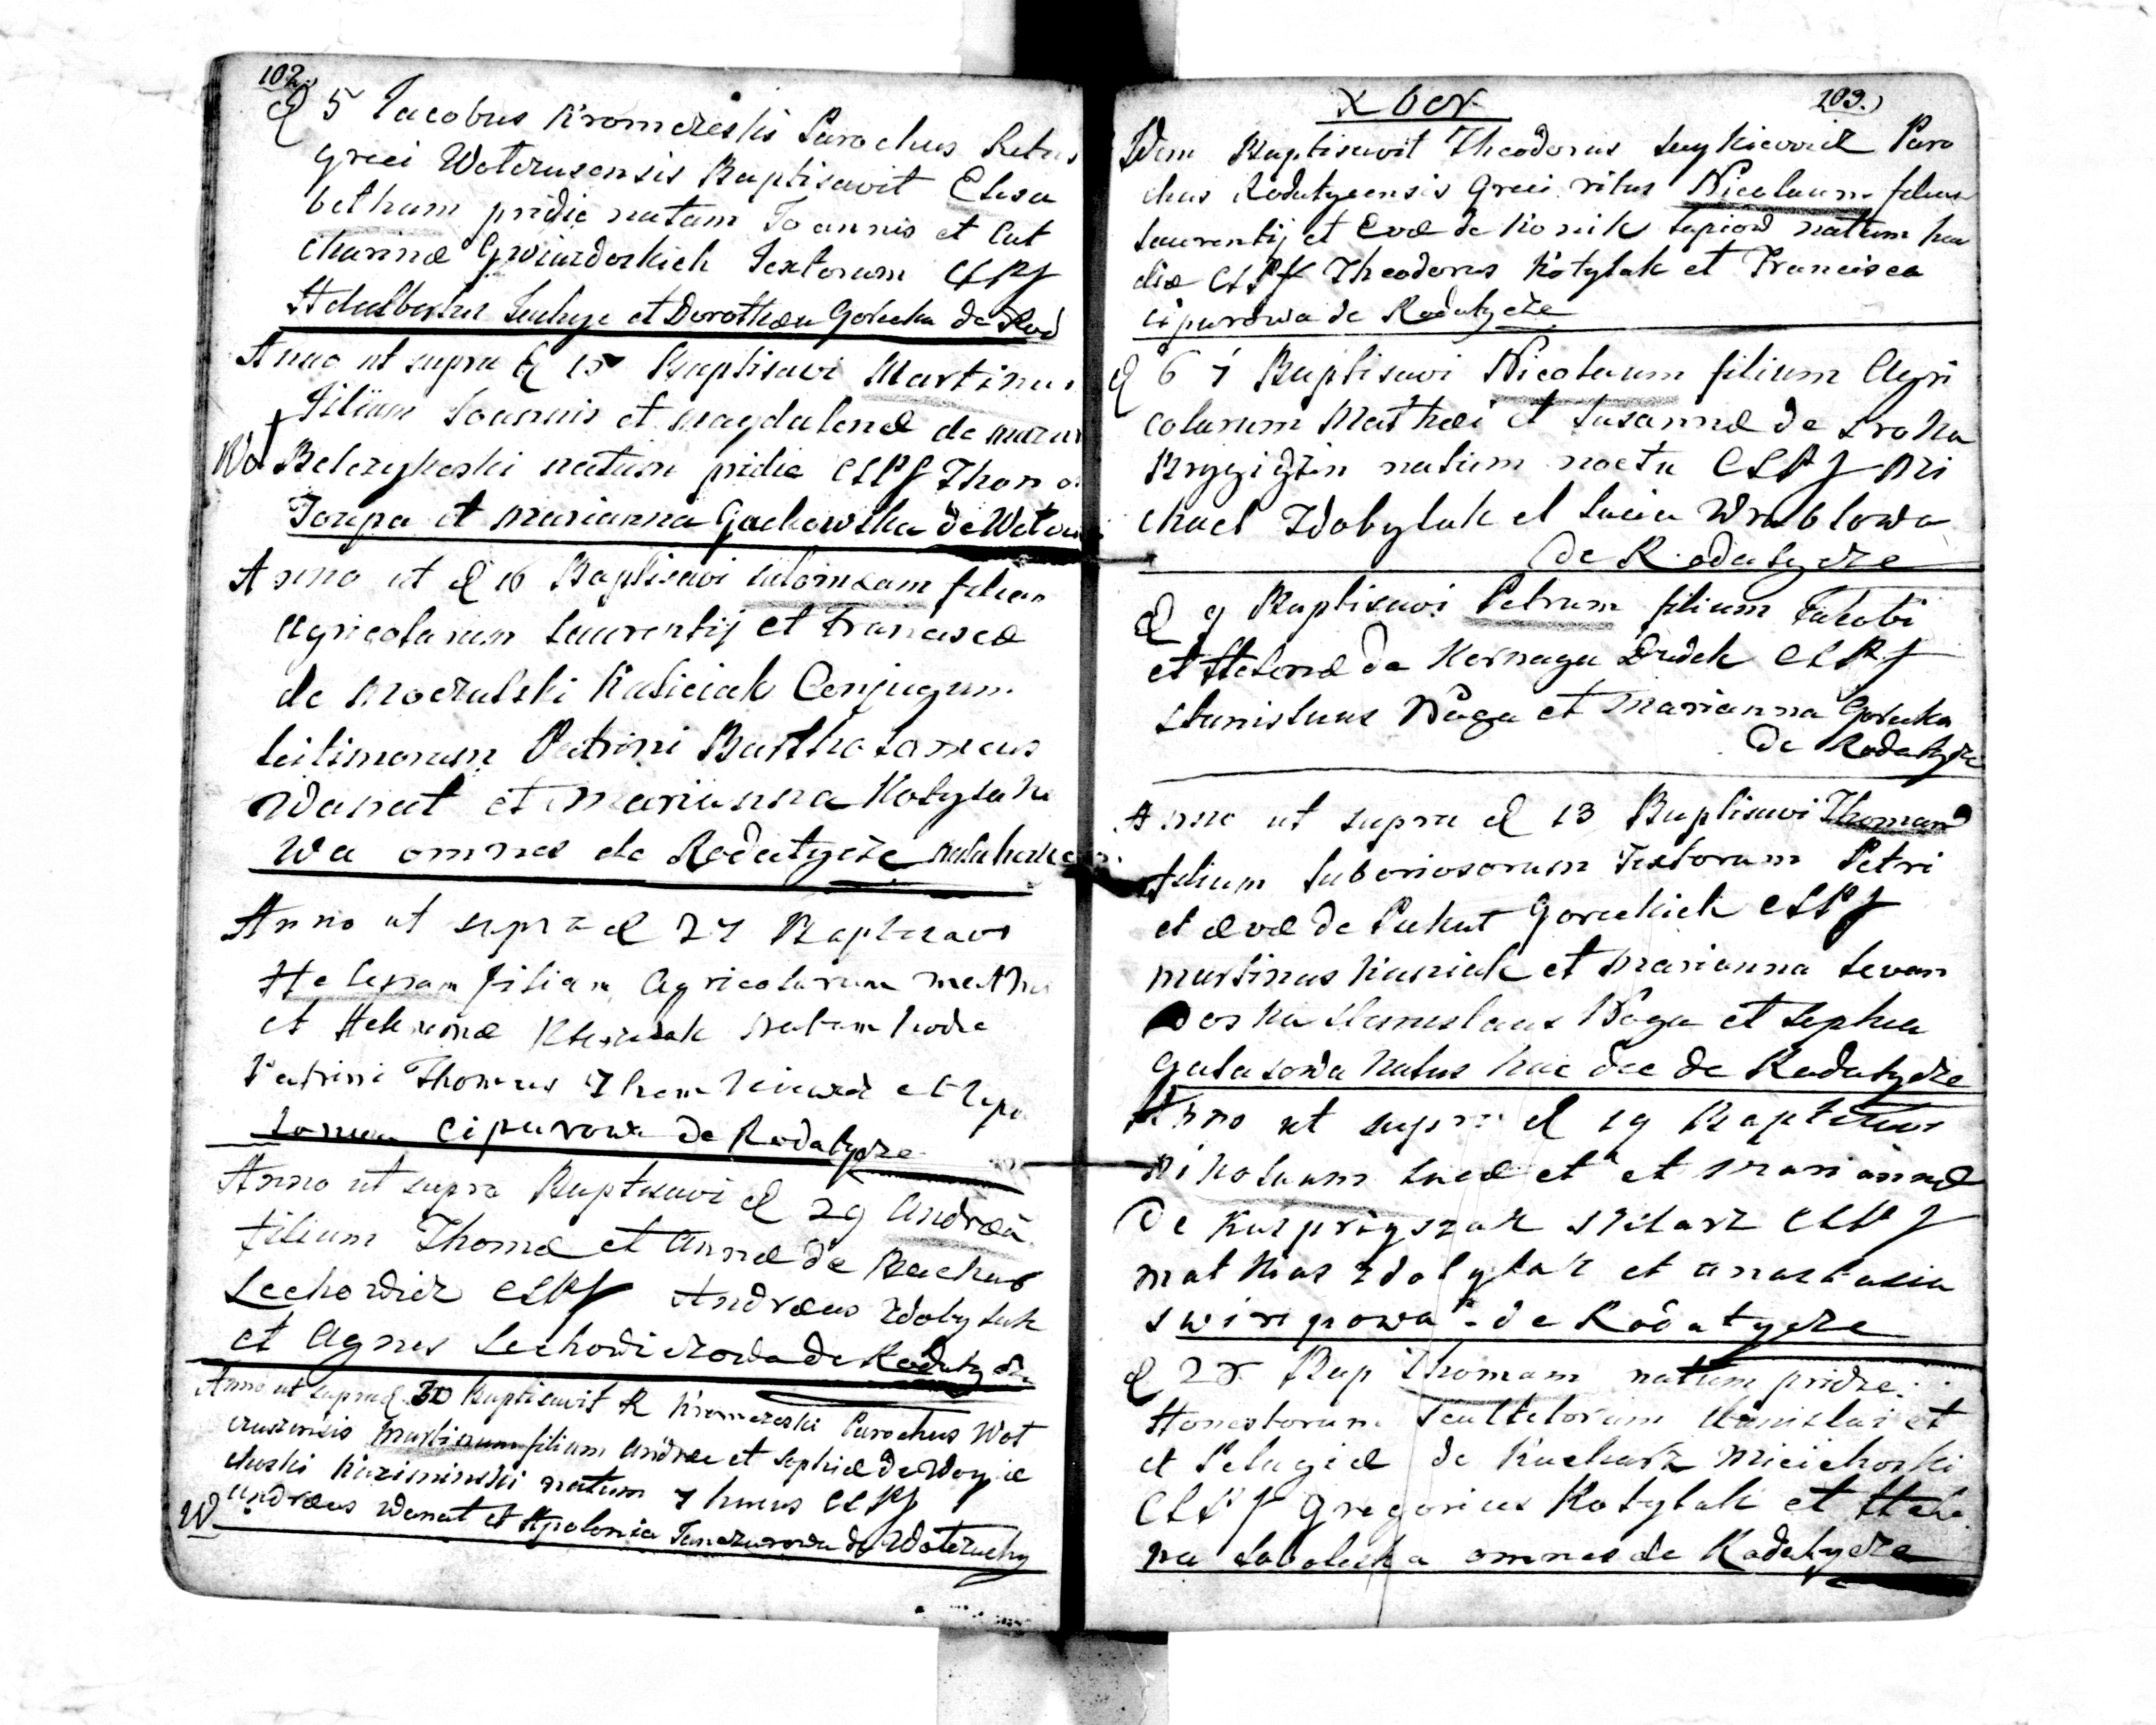 102.
d 5 Jacobus Kromczeski Parochus Ritus
greci Wolczusensis Baptisavit Elisa
betham pridie natam Joannis et Cat
charinæ Gwiazdoskich Textorum CLPf
Adalbertus et Dorothea Gorecka de Rod
Anno ut supra d 15 Baptisavi Martinu
filium Joannis et Magdalenæ de
Wol natum pridie CLPf Thoma
et Marianna Gachowska de
Anno ut d 16 Baptisavi Salomeam filiam
Agricolarum Laurentij et Franciscæ
de Moczulski Kasiciak Conjugum
Leitimorum Patrini Bartholomeus
Wanat et Marianna Kotylako
wa omnes de Rodatycze
Anno ut supra d 27 Baptisavi
Helenam filiam Agricolarum Mathei
et natam hodie
Patrini Thomas et Apo
lonia Ciparowa de Rodatycze
Anno ut supra Baptisavi d 29 Andreā
filium Thomæ et Annæ de
Lechowicz CLPf Andreas Zdobylak
et Agnes Lechowiczowa de Rodatycze
Anno ut supra d 30 Baptisavit R Kromczeski Parochus Wol
czusensis Martinum filium Andreæ et Sophiæ de Woycie
choski Kaziminski natum 7 hujus CLPf
W Andreas Wanat et Apolonia de Wolczuchy
Xber
103.)
Idem Baptisavit Theodorus Paro
chus Rodatycensis Greci ritus Nicolaum filium
Laurentij et Evæ de Konik natum ho
die CLPf Theodorus Kotylak et Francisca
Ciparowa de Rodatycze
d 6 Baptisavi Nicolaum filium Agri
colarum Mathei et Susannæ de Sroka
natum noctu CLPf Mi
chael Zdobylak et Lucia Wroblowa
de Rodatycze
d 9 Baptisavi Petrum filium Jakobi
et Helenæ de Kornaga Dudek CLPf
Stanislaus Noga et Marianna Gorecka
de Rodatycze
Anno ut supra d 13 Baptisavi Thomam
filium Laboriosorum Textorum Petri
et Evæ de Goreckich CLPf
Martinus Kusniak et Marianna Levan
doska Stanislaus Noga et Sophia
Galasowa natus hac die de Rodatycze
Anno ut supra d 19 Baptisavi
Nikolaum Lucæ et et Mariannæ
de CLPf
Mathias Zdobylak et Anastasia
Swirepowa de Rodatycze
d 28 Bap Thomam natum pridie
Honestorum Scultetorum Stanislai et
et Pelagiæ de Kucharz Micichoski
CLPf Gregorius Kotylak et Hele
na Soboleska omnes de Rodatycze